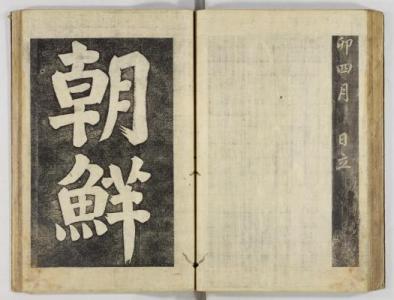 卯四月　日立
朝鮮